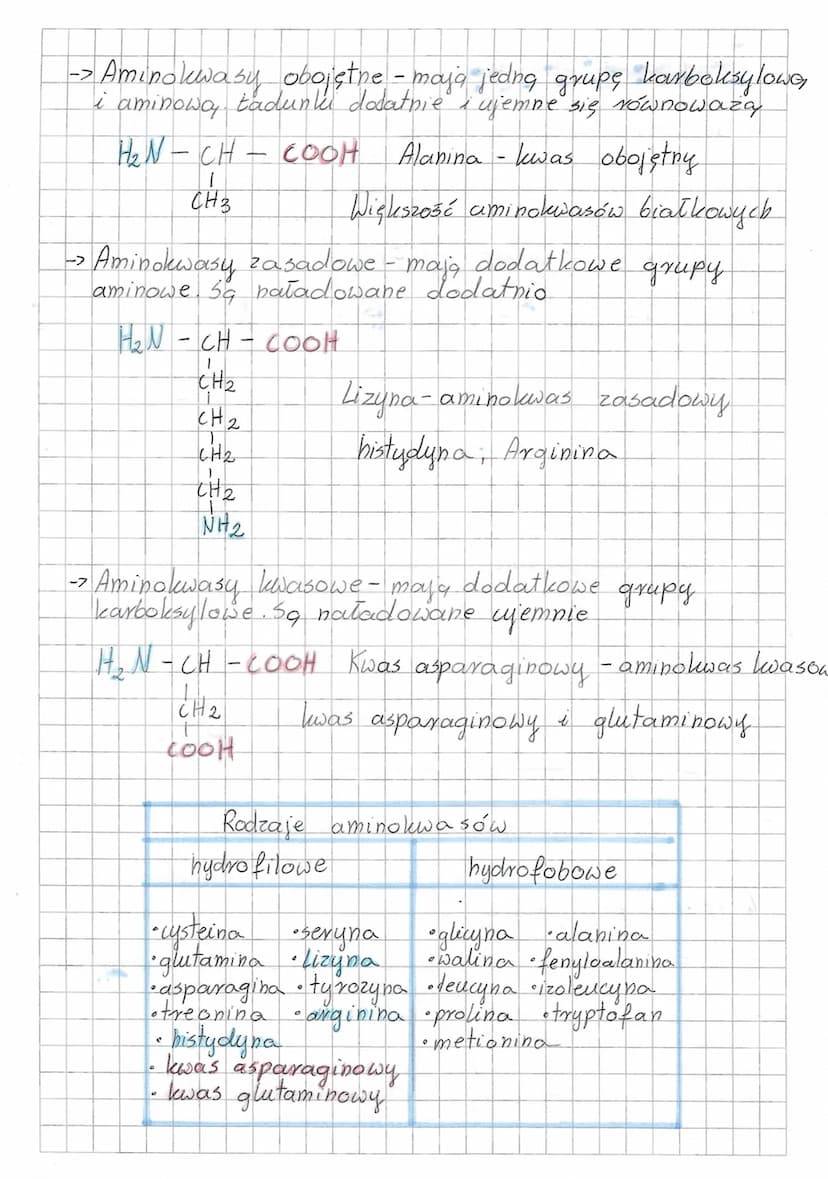 -> Aminokwasy obojętne - mają jedną grupę karboksylową
i aminową. Ładunki dodatnie i ujemne się równoważą
H₂N - CH - COOH Alanina - kwas obojętny
CH₃
Większość aminokwasów białkowych
-> Aminokwasy zasadowe - mają dodatkowe grupy
aminowe. Są naładowane dodatnio
H₂N - CH - COOH
CH₂
Lizyna - aminokwas zasadowy
CH₂
CH₂
histydyna, Arginina
CH₂
NH₂
-> Aminokwasy kwasowe - mają dodatkowe grupy
karboksylowe. Są naładowane ujemnie
H₂N - CH - COOH Kwas asparaginowy - aminokwas kwasow
CH₂
kwas asparaginowy i glutaminowy
COOH
Rodzaje aminokwasów
hydrofilowe hydrofobowe
•cysteina •seryna •glicyna •alanina
•glutamina •lizyna •walina •fenyloalanina
•asparagina •tyrozyna •leucyna •izoleucyna
•treonina •arginina •prolina •tryptofan
•histydyna •metionina
•kwas asparaginowy
•kwas glutaminowy